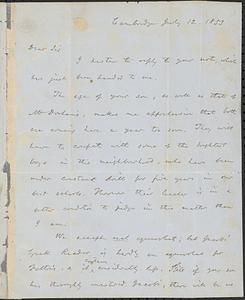 Cambridge July 12. 1853
Dear Sir
I hasten to reply to your note, which
has just been handed to me.
The age of your son, as well as that of
Mr makes me apprehensive that both
are coming here a year too soon. They will
have to compete with some of the brightest
boys in this neighborhood, who have been
under constant drill for five years in our
best schools. However their teacher is in a
better condition to judge in this matter than
I am.
We accept equivalents; but Jacobs'
Greek Reader is hardly an equivalent for
Felton's, & is considerably less. Still if your son
has thoroughly mastered Jacobs', there will be no